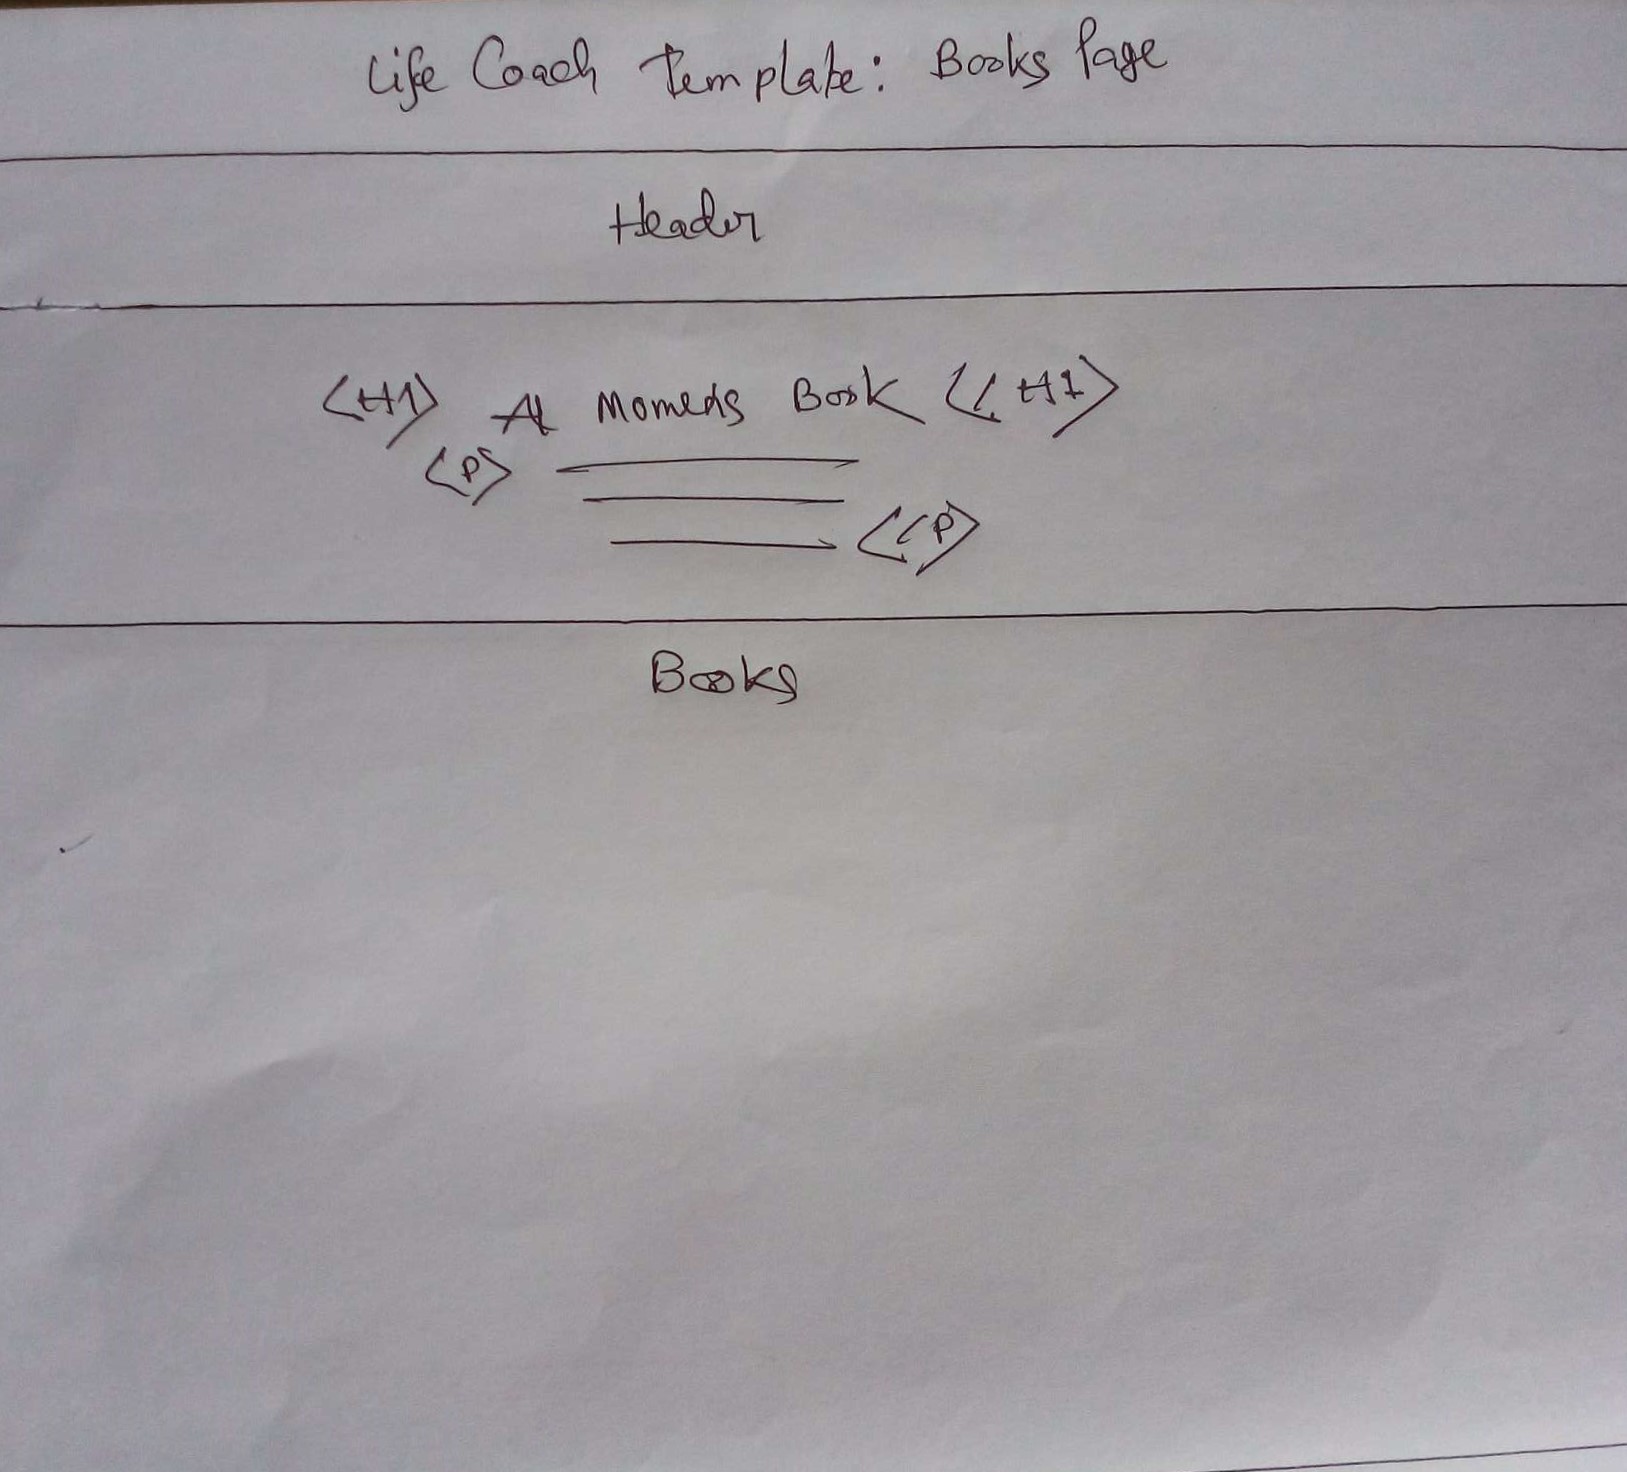 Life Coach Template: Books Page
Header
<H1> Al Momens Book </H1>
<P>
</P>
Books